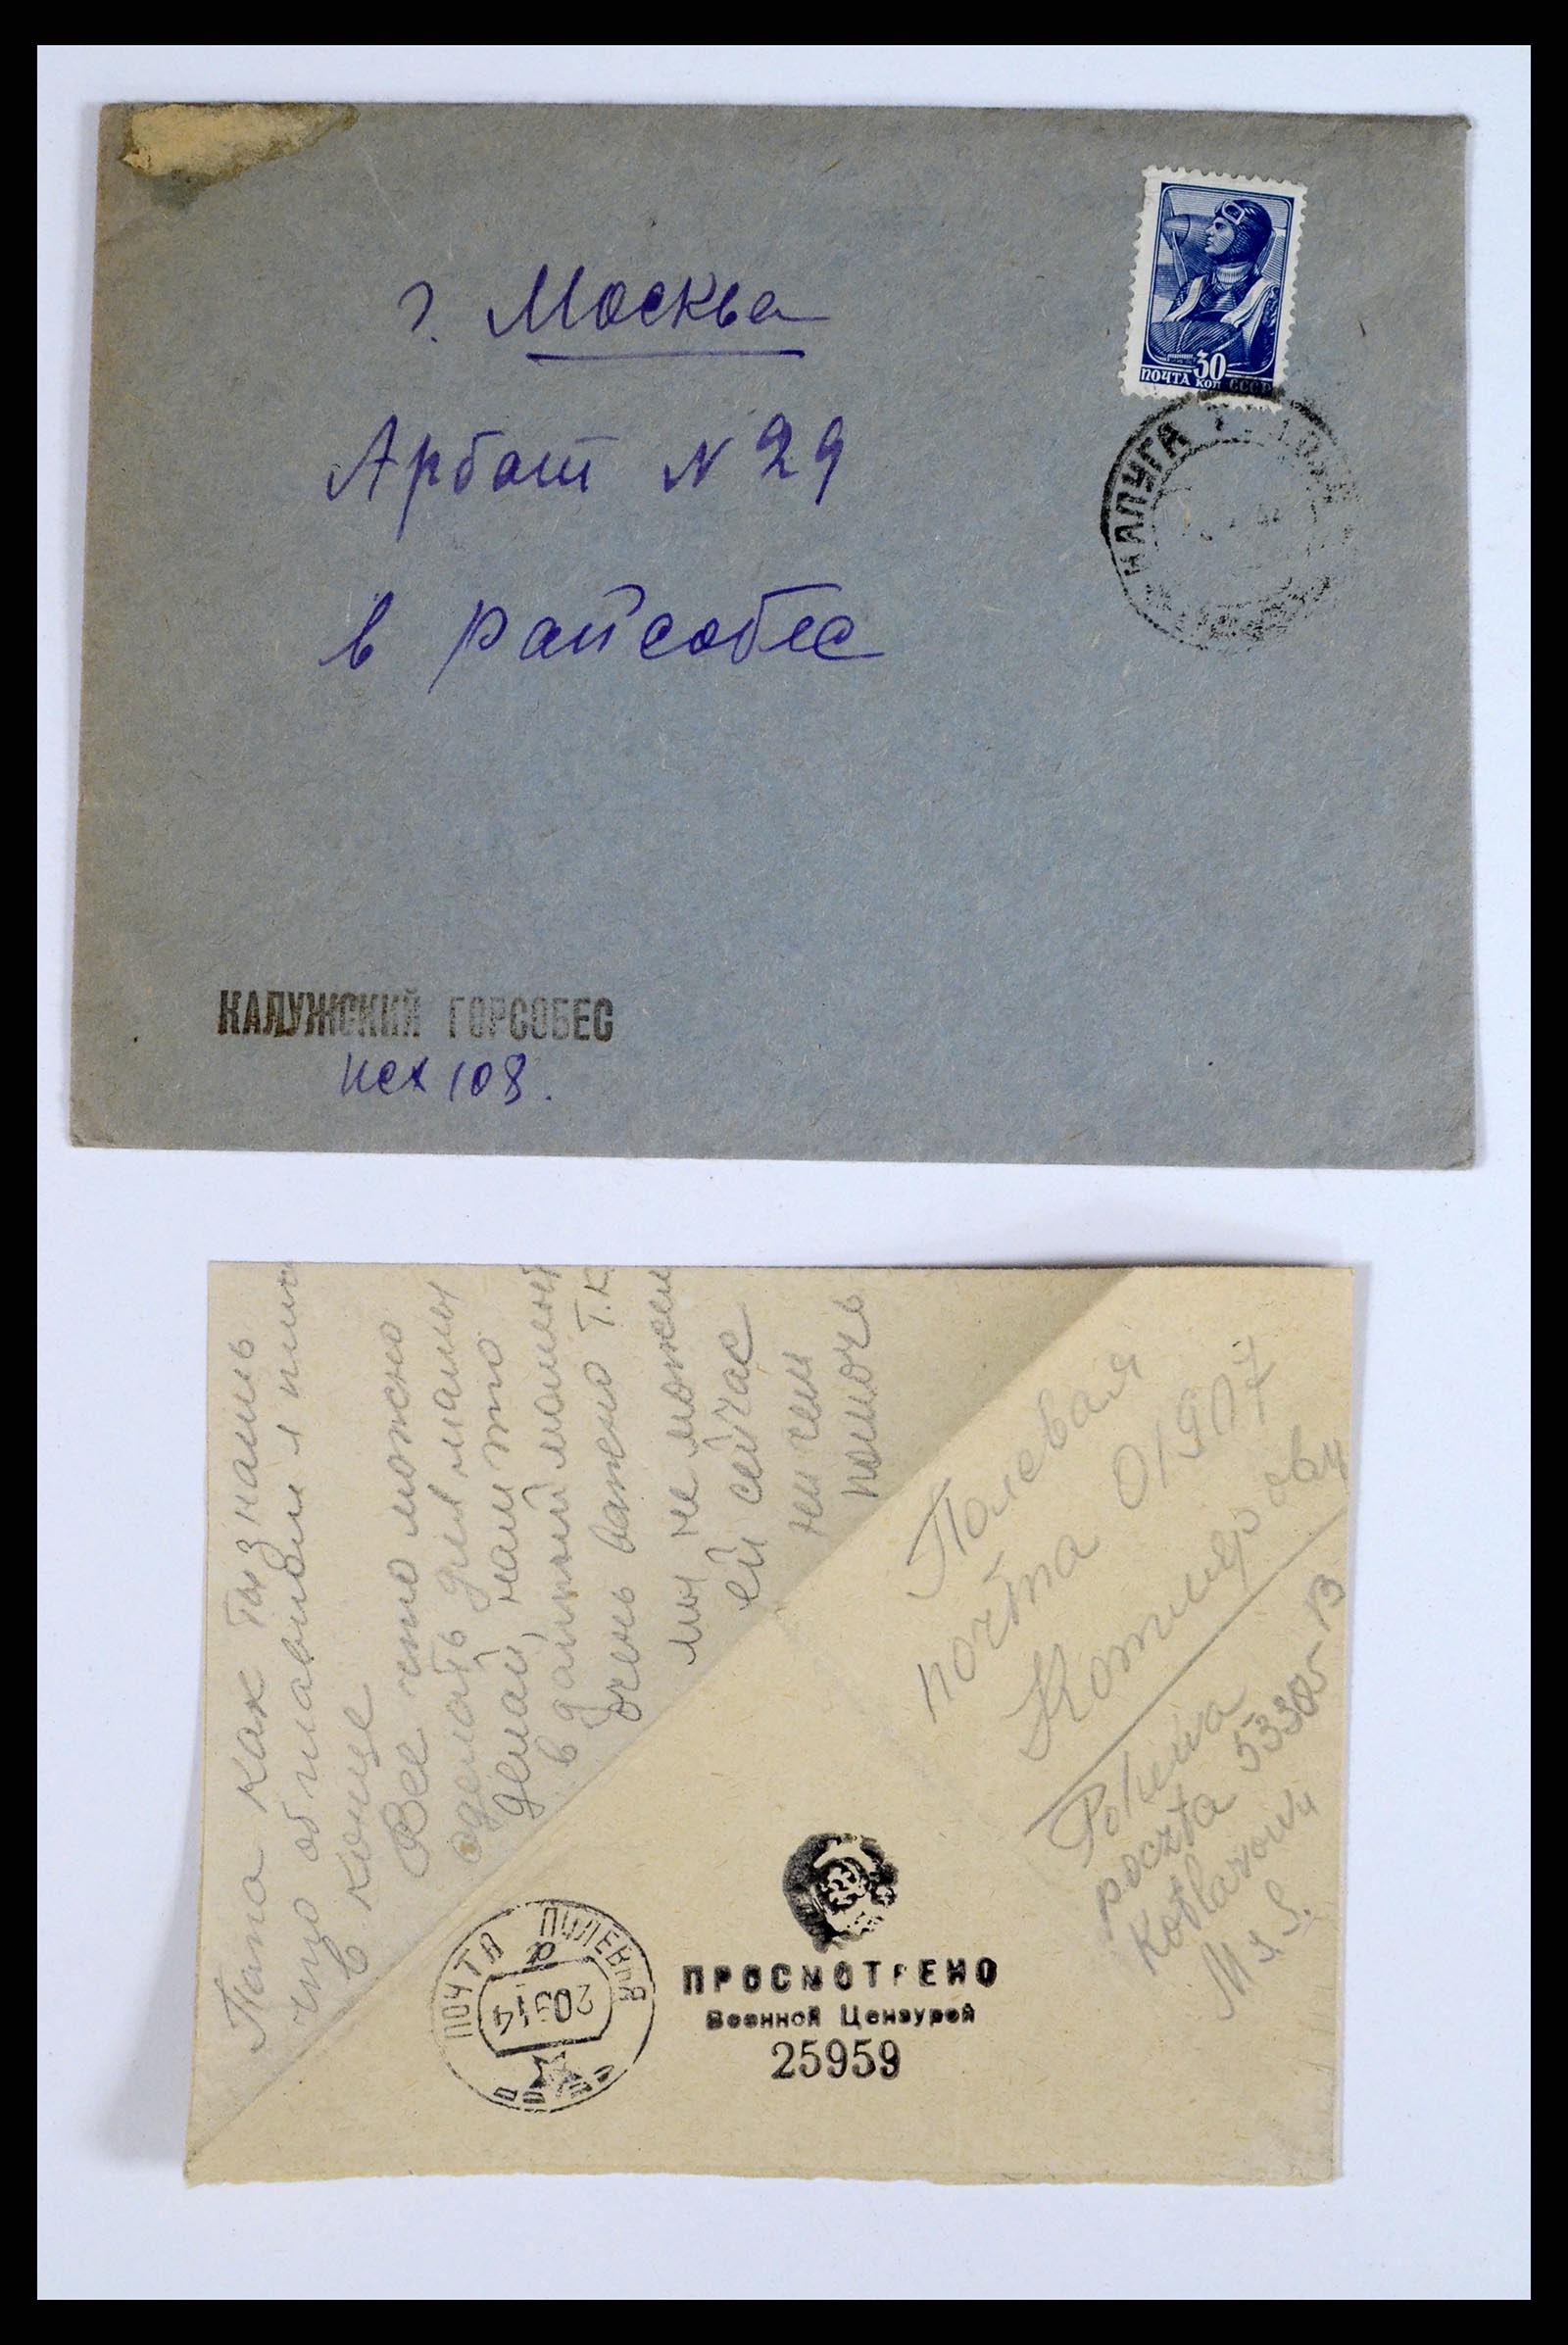 г. Москва
Арбат N 29
в райсобес
30
ПОЧТА КОП СССР
КАЛУГА
КАЛУЖСКИЙ ГОРСОБЕС
исх 108.
Папа как ты знаешь
что облигации я
в конце
Все что можно
сделать для мамы
делай, нам это
в данный момент
очень важно т.к.
мы не можем
ей сейчас
ни чем
помочь
Полевая
почта 01907
Polowa
poczta 53305-B
Kotlarowu
M. S.
ПОЧТА ПОЛЕВАЯ
ПРОСМОТРЕНО
Военной Цензурой
25959